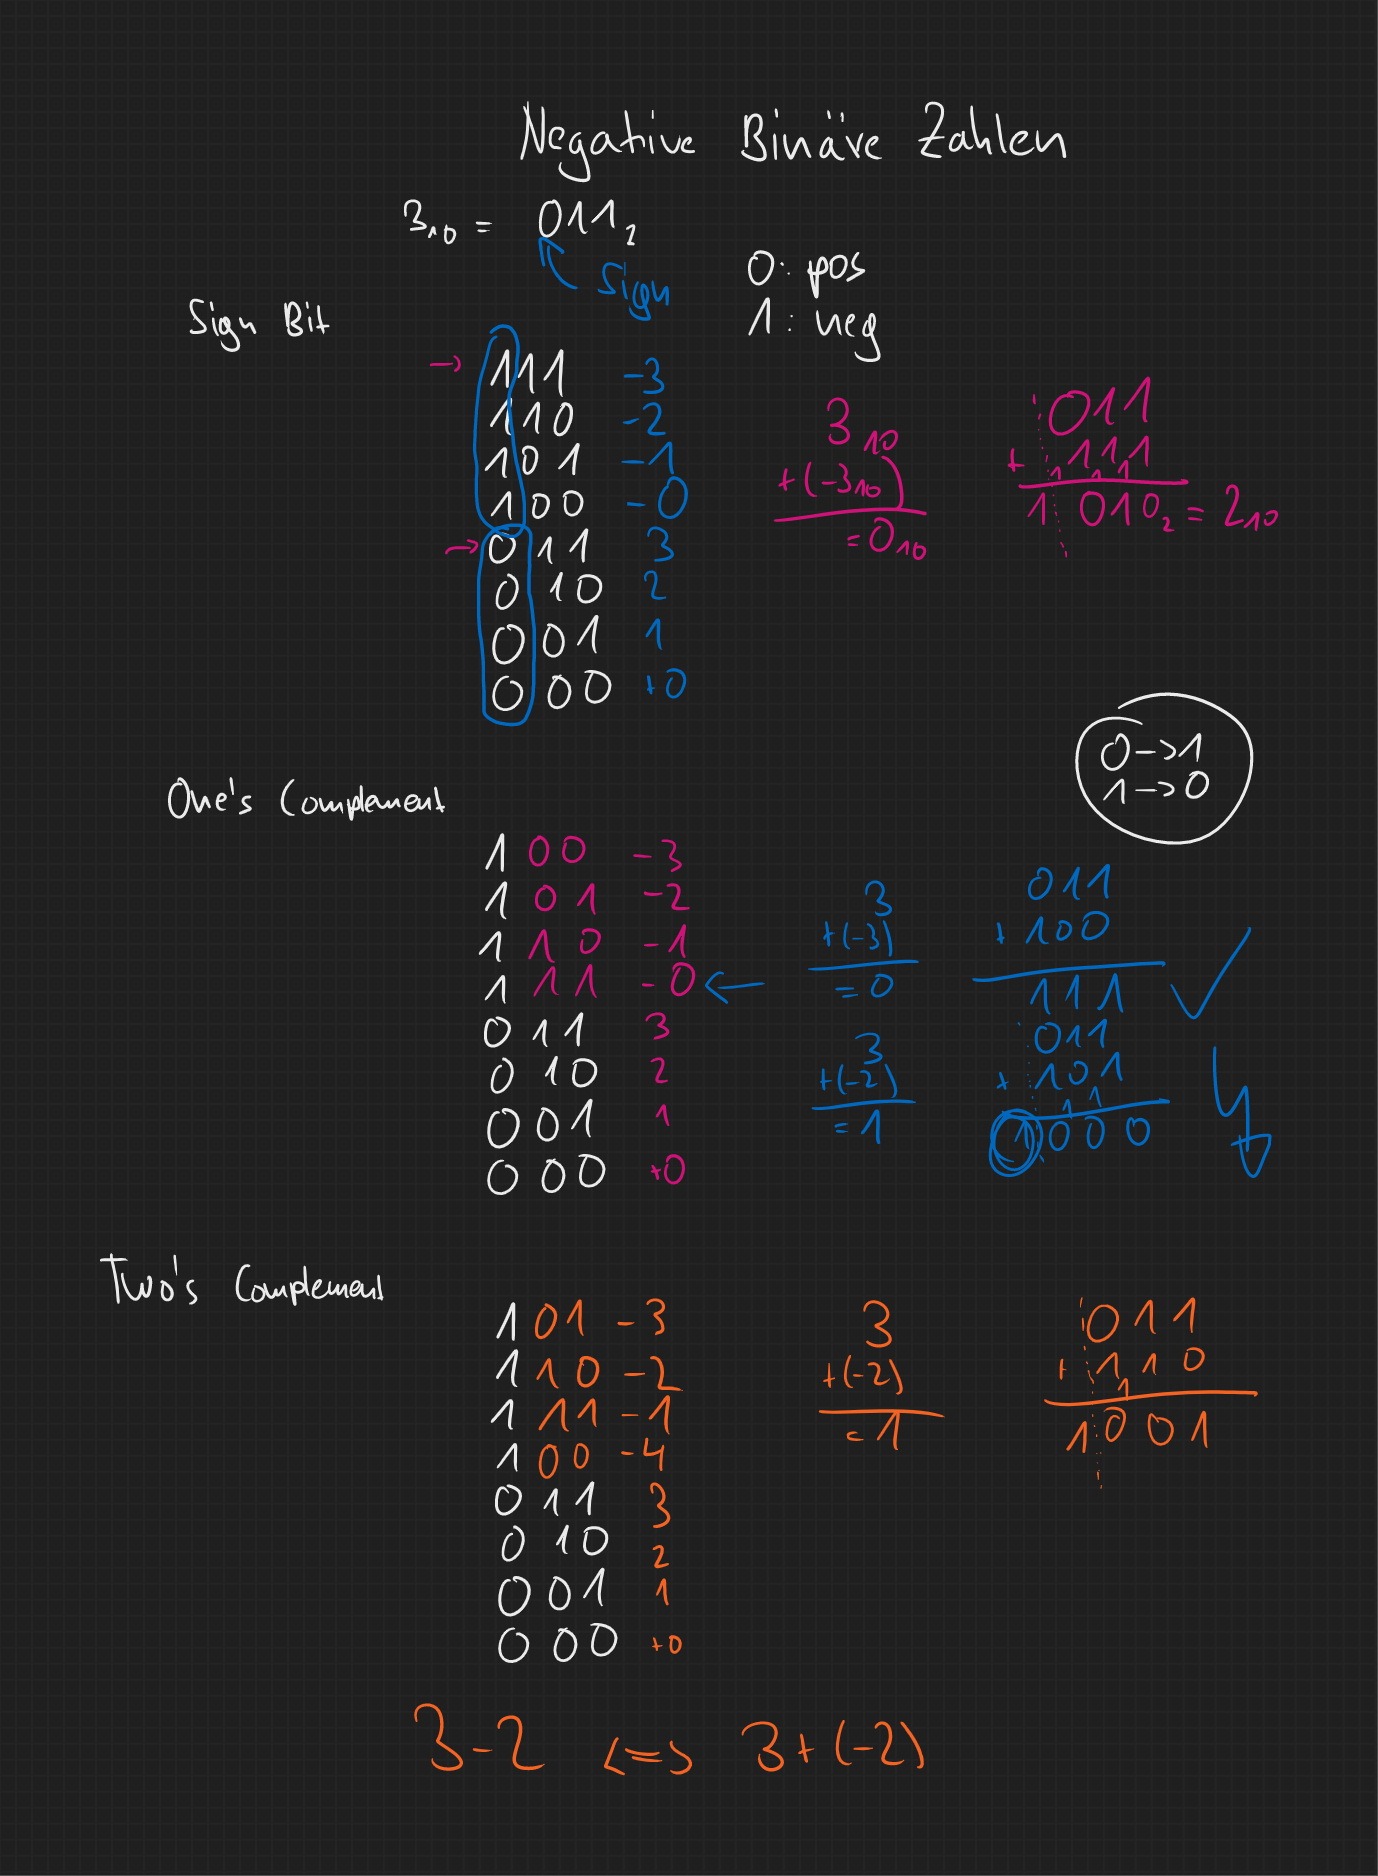 Negative Binäre Zahlen
3₁₀ = 011₂
Sign
0: pos
1: neg
Sign Bit
→ 111 -3
110 -2
101 -1
100 -0
→ 011 3
010 2
001 1
000 +0
3₁₀
+(-3₁₀)
=0₁₀
011
+ 111
1 1 1
1 010₂ = 2₁₀
0->1
1->0
One's Complement
100 -3
101 -2
110 -1
111 -0 ←
011 3
010 2
001 1
000 +0
3
+(-3)
=0
011
+ 100
111 ✓
3
+(-2)
=1
011
+ 101
1 1
1000
Two's Complement
101 -3
110 -2
111 -1
100 -4
011 3
010 2
001 1
000 +0
3
+(-2)
=1
011
+ 110
1
1001
3-2 <=> 3+(-2)